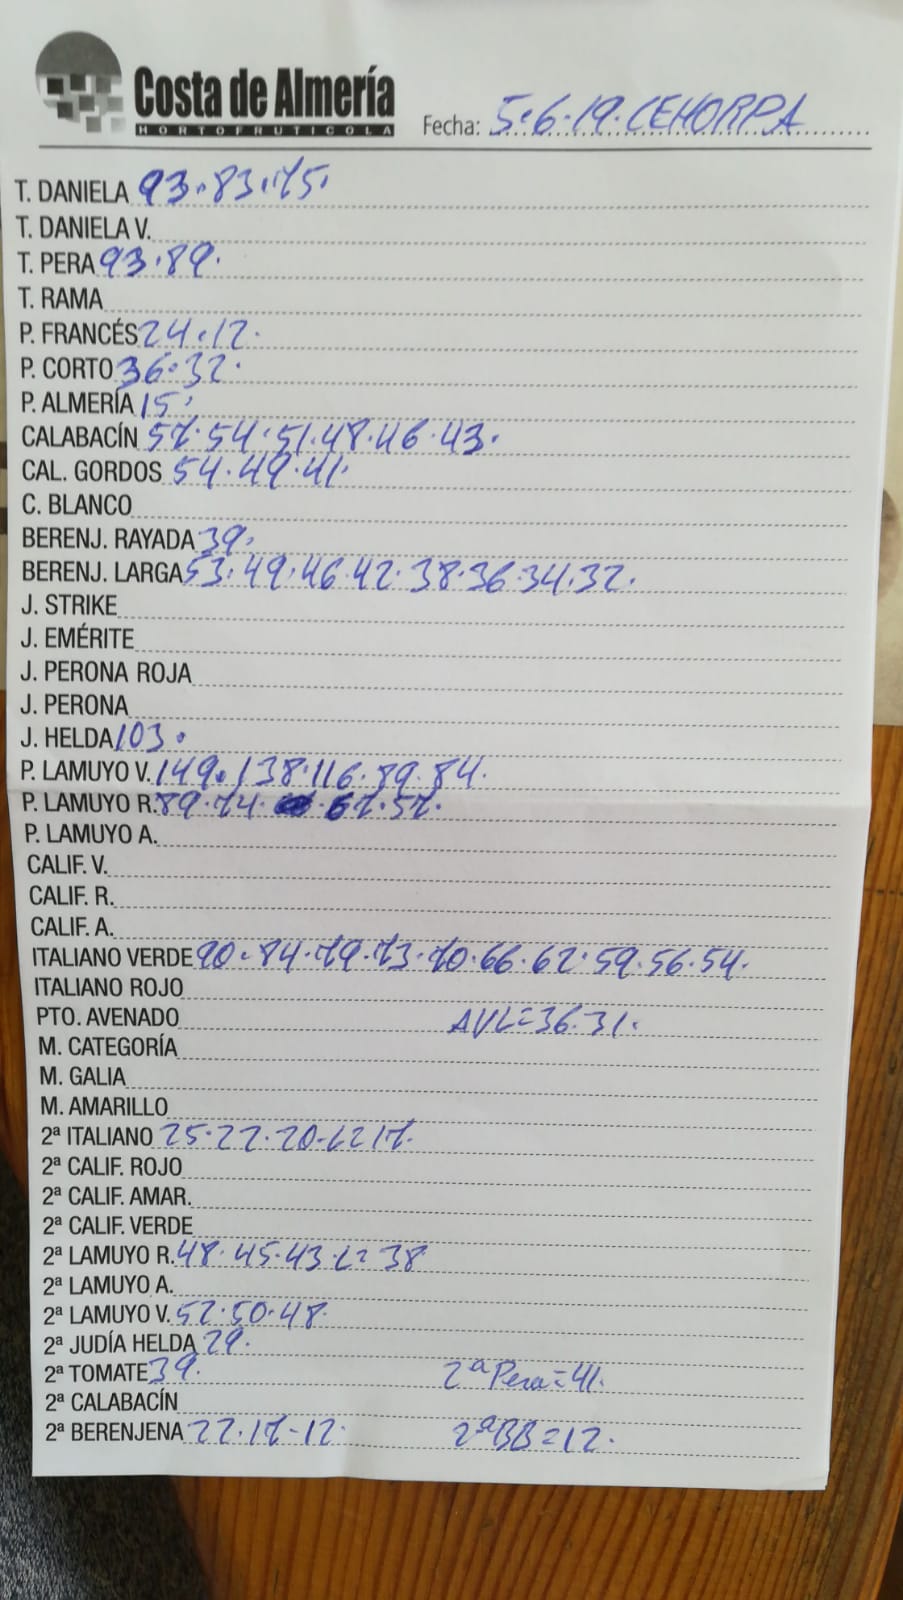 Costa de Almería
HORTOFRUTICOLA
Fecha: 5.6.19.CEHORPA
T. DANIELA 93.83.75.
T. DANIELA V.
T. PERA 93.89.
T. RAMA
P. FRANCÉS 24.12.
P. CORTO 36.32.
P. ALMERÍA 15.
CALABACÍN 57.54.51.48.46.43.
CAL. GORDOS 54.49.41.
C. BLANCO
BERENJ. RAYADA 39.
BERENJ. LARGA 53.49.46.42.38.36.34.32.
J. STRIKE
J. EMÉRITE
J. PERONA ROJA
J. PERONA
J. HELDA 103.
P. LAMUYO V. 149.138.116.89.84.
P. LAMUYO R. 89.74. 67.57.
P. LAMUYO A.
CALIF. V.
CALIF. R.
CALIF. A.
ITALIANO VERDE 90.84.79.73.70.66.62.59.56.54.
ITALIANO ROJO
PTO. AVENADO AVL=36.31.
M. CATEGORÍA
M. GALIA
M. AMARILLO
2ª ITALIANO 25.22.20. 17.
2ª CALIF. ROJO
2ª CALIF. AMAR.
2ª CALIF. VERDE
2ª LAMUYO R. 48.45.43. 38
2ª LAMUYO A.
2ª LAMUYO V. 52.50.48.
2ª JUDÍA HELDA 29.
2ª TOMATE 39. 2ª Pera=41.
2ª CALABACÍN
2ª BERENJENA 22.17-12. 2ªBB=12.